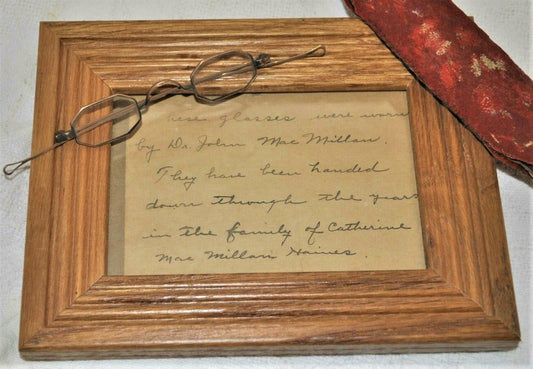 These glasses were worn
by Dr. John Mac Millan.
They have been handed
down through the years
in the family of Catherine
Mac Millan Haines.